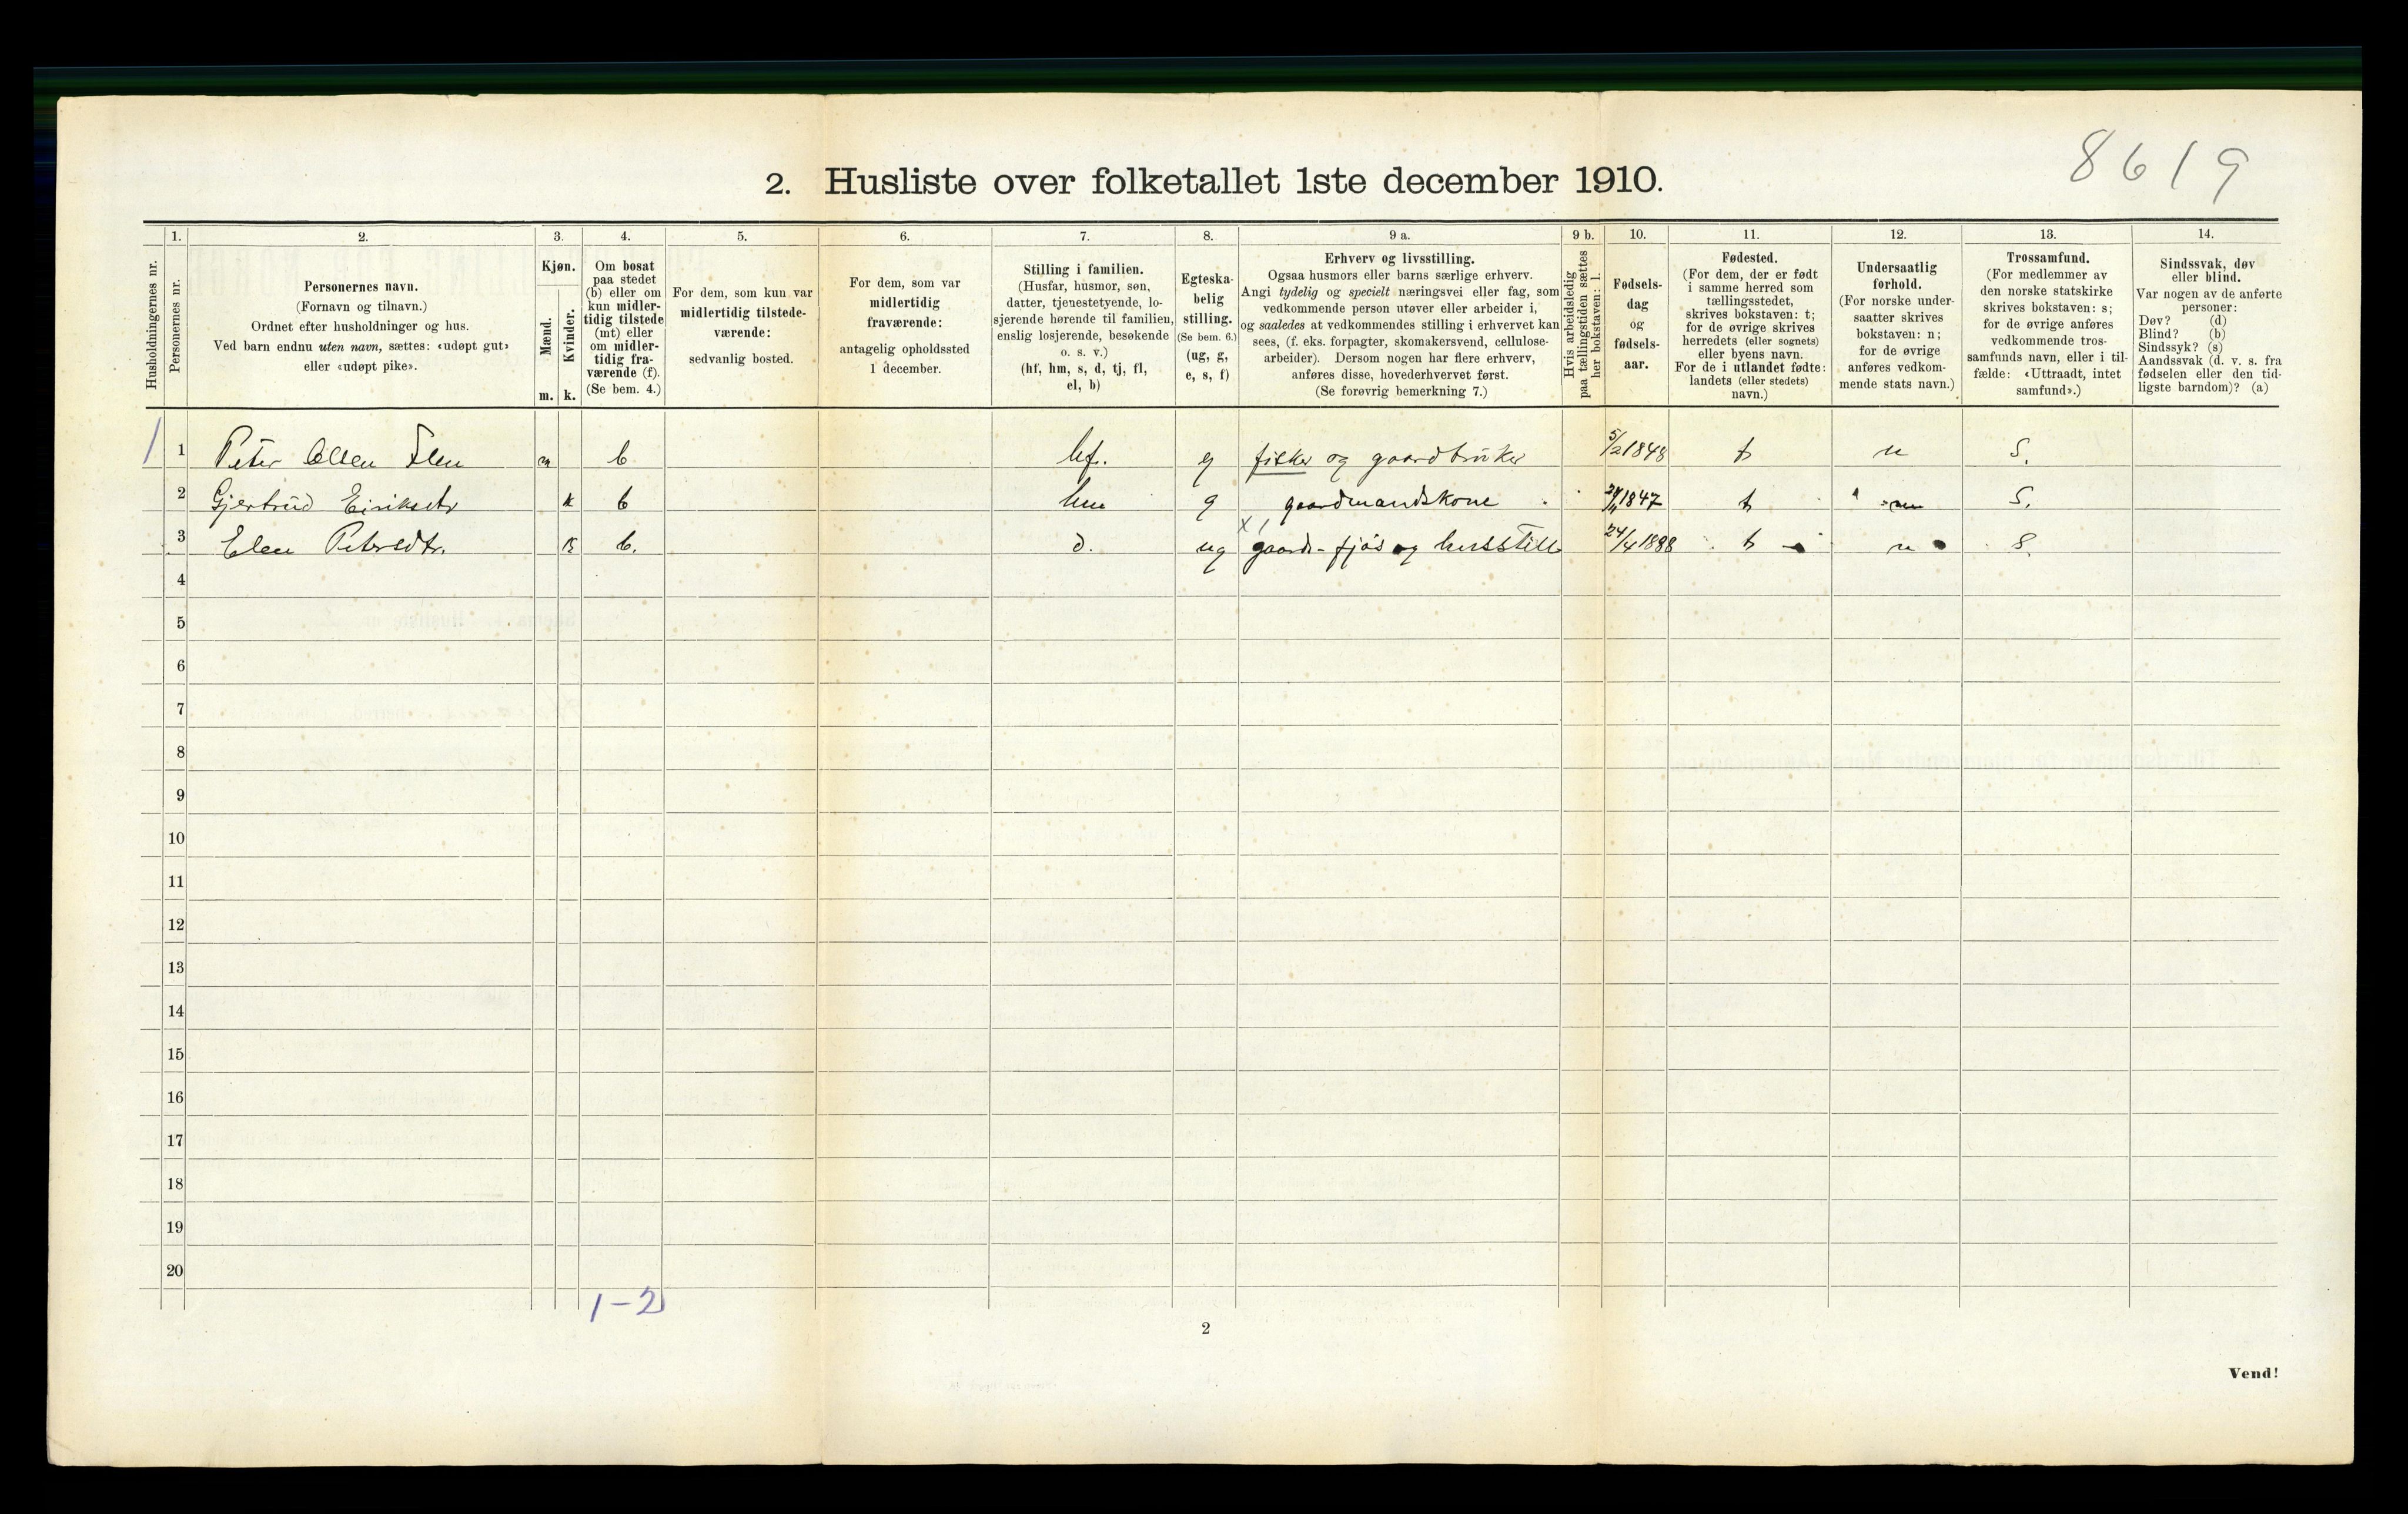 8619
2. Husliste over folketallet 1ste december 1910.
1. 2. 3. 4. 5. 6. 7. 8. 9 a. 9 b. 10. 11. 12. 13. 14.
Husholdningernes nr.
Personernes nr.
Personernes navn.
(Fornavn og tilnavn.)
Ordnet efter husholdninger og hus.
Ved barn endnu uten navn, sættes: «udøpt gut»
eller «udøpt pike».
Kjøn.
Mænd.
Kvinder.
m. k.
Om bosat
paa stedet
(b) eller om
kun midler-
tidig tilstede
(mt) eller
om midler-
tidig fra-
værende (f).
(Se bem. 4.)
For dem, som kun var
midlertidig tilstede-
værende:
sedvanlig bosted.
For dem, som var
midlertidig
fraværende:
antagelig opholdssted
1 december.
Stilling i familien.
(Husfar, husmor, søn,
datter, tjenestetyende, lo-
sjerende hørende til familien,
enslig losjerende, besøkende
o. s. v.)
(hf, hm, s, d, tj, fl,
el, b)
Egteska-
belig
stilling.
(Se bem. 6.)
(ug, g,
e, s, f)
Erhverv og livsstilling.
Ogsaa husmors eller barns særlige erhverv.
Angi tydelig og specielt næringsvei eller fag, som
vedkommende person utøver eller arbeider i,
og saaledes at vedkommendes stilling i erhvervet kan
sees, (f. eks. forpagter, skomakersvend, cellulose-
arbeider). Dersom nogen har flere erhverv,
anføres disse, hovederhvervet først.
(Se forøvrig bemerkning 7.)
Hvis arbeidsledig
paa tællingstiden sættes
her bokstaven: l.
Fødsels-
dag
og
fødsels-
aar.
Fødested.
(For dem, der er født
i samme herred som
tællingsstedet,
skrives bokstaven: t;
for de øvrige skrives
herredets (eller sognets)
eller byens navn.
For de i utlandet fødte:
landets (eller stedets)
navn.)
Undersaatlig
forhold.
(For norske under-
saatter skrives
bokstaven: n;
for de øvrige
anføres vedkom-
mende stats navn.)
Trossamfund.
(For medlemmer av
den norske statskirke
skrives bokstaven: s;
for de øvrige anføres
vedkommende tros-
samfunds navn, eller i til-
fælde: «Uttraadt, intet
samfund».)
Sindssvak, døv
eller blind.
Var nogen av de anførte
personer:
Døv? (d)
Blind? (b)
Sindssyk? (s)
Aandssvak (d. v. s. fra
fødselen eller den tid-
ligste barndom)? (a)
1 1 Peter Olsen m b hf. g fisker og gaardbruker 5/2 1848 t n S.
2 Gjertrud Eiriksdtr k b hm g gaardmandskone 1847 t n S.
3 Elen Petersdtr. k b. d. ug gaards- fjös og husstell 24/4 1888 t n S.
4
5
6
7
8
9
10
11
12
13
14
15
16
17
18
19
20
1-2
2
Vend!